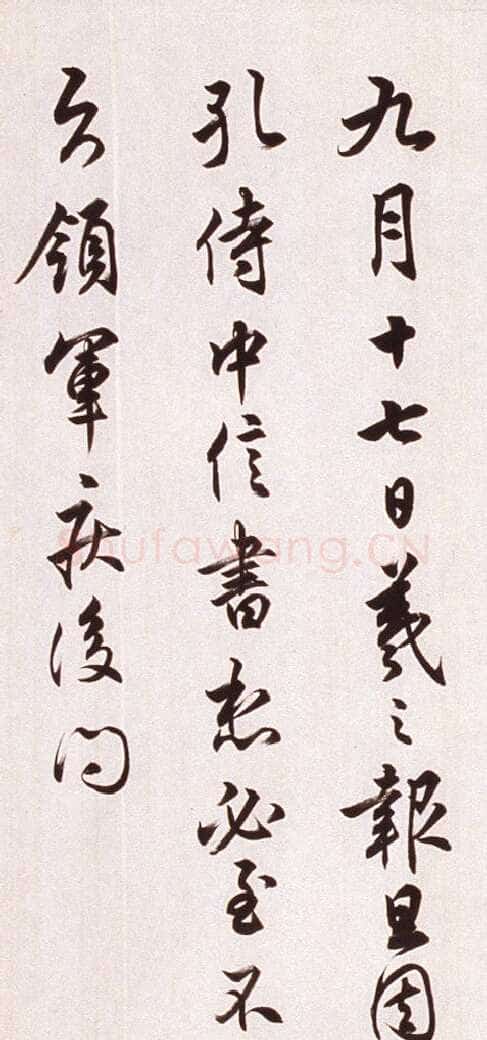 九月十七日羲之報且因
孔侍中信書想必至不
知領軍疾後問
shufawang.CN